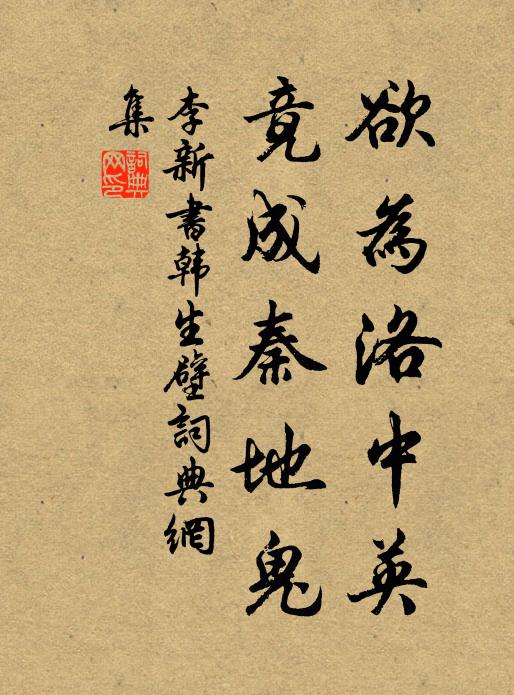 欲為洛中英
竟成秦地鬼
李新書韩生壁詞典網
集
詞典
网印